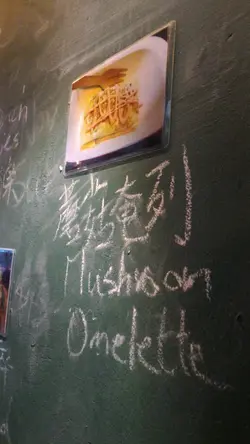 蘑菇奄列
Mushroom
Omelette